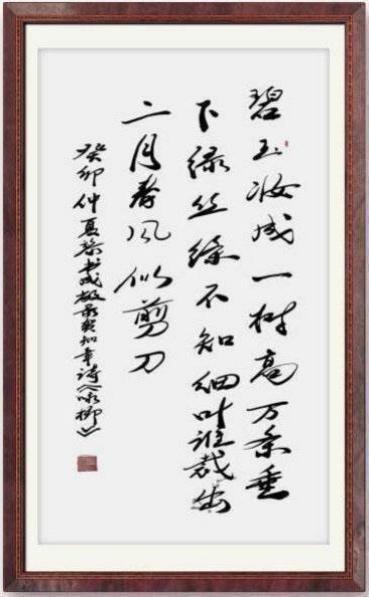 碧玉妆成一树高万条垂
下绿丝绦不知细叶谁裁出
二月春风似剪刀
癸卯仲夏恭书盛敬录贺知章诗《咏柳》